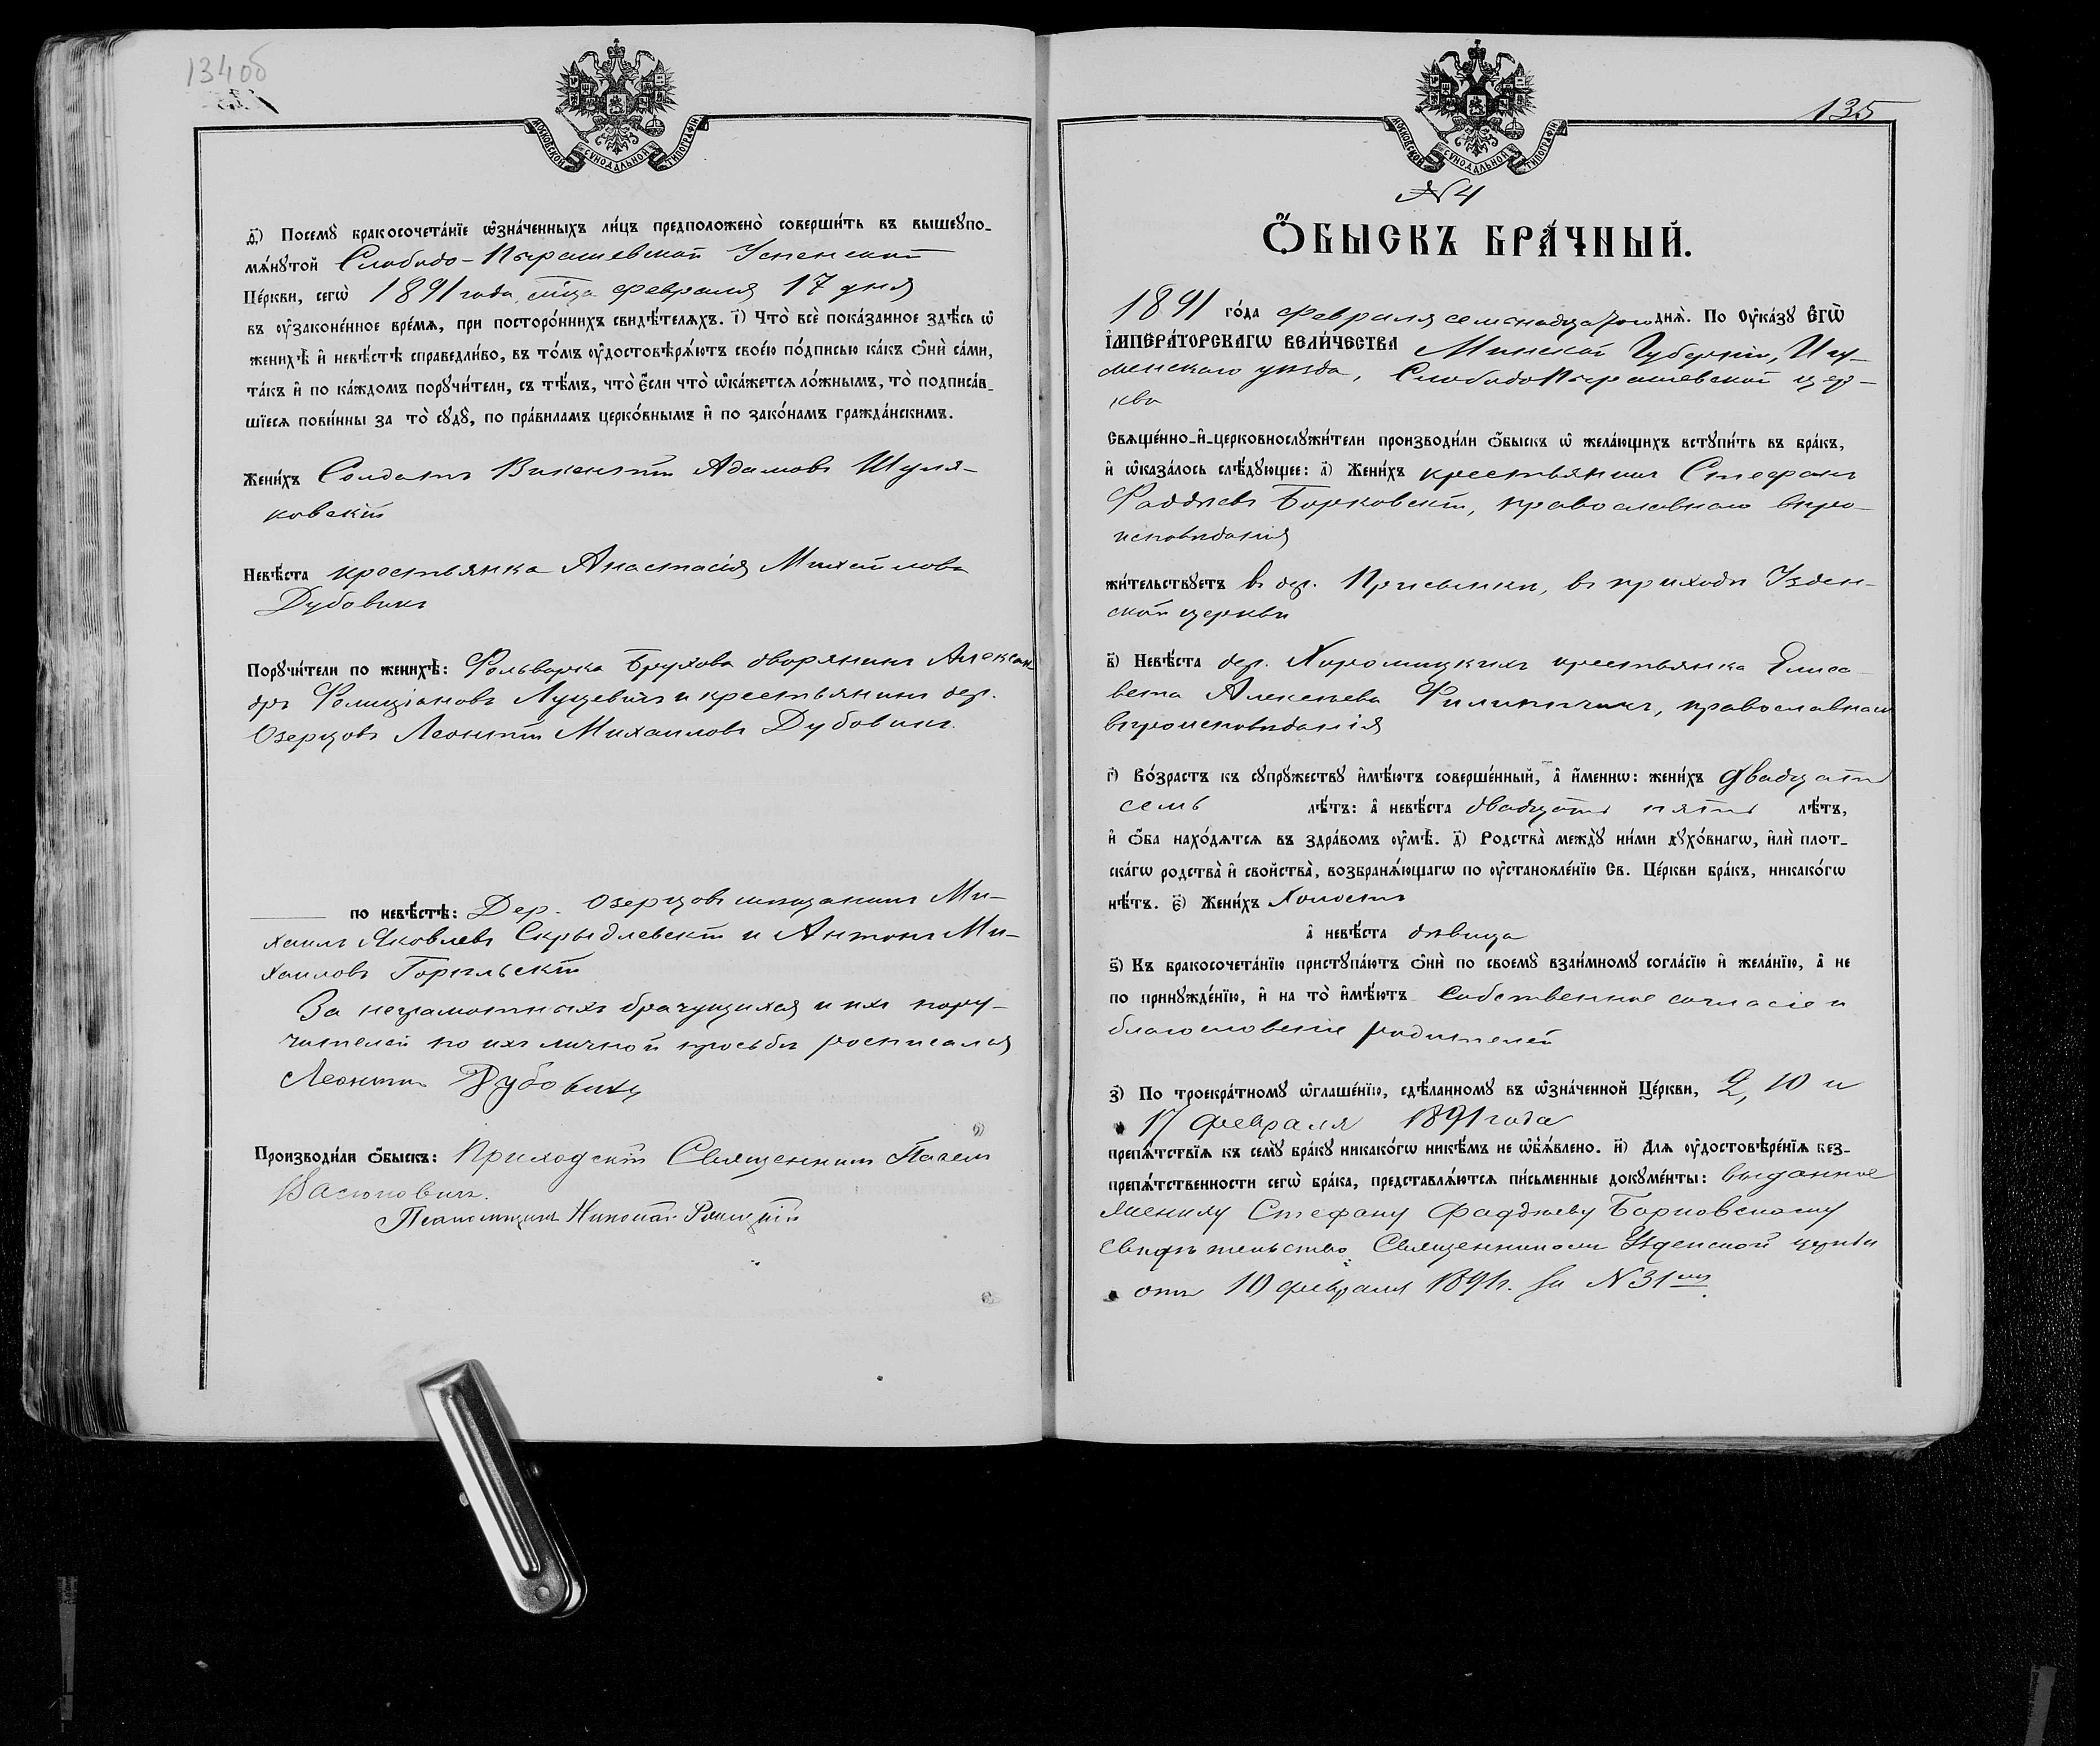 134об
МОСКОВСКОЙ СУНОДАЛЬНОЙ ТИПОГРАФІИ
Ѳ҃) Посемꙋ̀ бракосочета́нїе ѡ҆зна́ченныхъ ли́цъ предположено̀ соверши́ть въ вышеꙋпо-
мѧ́нꙋтой Слободо-Пырашевской Успенской
Це́ркви, сегѡ̀ 1891 года, м̃ца февраля 17 дня
въ ᲂу҆законе́нное вре́мѧ, при посторо́ннихъ свидѣ́телѧхъ. і҃) Что̀ всѐ пока́занное здѣ́сь ѡ҆
женихѣ̀ и҆ невѣ́стѣ справедли́во, въ то́мъ ᲂу҆достовѣрѧ́ютъ свое́ю по́дписью ка́къ ѻ҆нѝ са́ми,
та́къ и҆ по ка́ждомъ порꙋчи́тели, съ тѣ́мъ, что̀ є҆́сли что̀ ѡ҆ка́жется ло́жнымъ, то̀ подписа́в-
шїесѧ пови́нны за то̀ сꙋдꙋ̀, по пра́виламъ церко́внымъ и҆ по зако́намъ гражда́нскимъ.
Жени́хъ Солдатъ Викентій Адамовъ Шуля-
ковскій
Невѣ́ста крестьянка Анастасія Михайлова
Дубовикъ
Порꙋчи́тели по женихѣ̀: Фольварка Брухова дворянинъ Алексан-
дръ Фелиціановъ Луцевичъ и крестьянинъ дер.
Озерцовъ Леонтій Михаиловъ Дубовикъ
по невѣ́стѣ: Дер. Озерцовъ мѣщанинъ Ми-
хаилъ Яковлевъ Скрыдлевскій и Антонъ Ми-
хаиловъ Горѣльскій
За неграмотныхъ брачущихся и ихъ пору-
чителей по ихъ личной просьбѣ росписался
Леонтій Дубовикъ
Производи́ли ѻ҆́быскъ: Приходскій Священникъ Павелъ
Васюковичъ.
Псаломщикъ Николай
135
МОСКОВСКОЙ СУНОДАЛЬНОЙ ТИПОГРАФІИ
N 4
Ѻ҆́БЫСКЪ БРА́ЧНЫЙ.
1891 го́да февраля семнадцатого днѧ̀. По ᲂу҆ка́зꙋ Є҆ГѠ̀
І҆МПЕРА́ТОРСКАГѠ ВЕЛИ́ЧЕСТВА Минской Губерніи, Игу-
менскаго уѣзда, СлободоПырашевской цер-
кви
Свѧще́нно-и҆-церковнослꙋжи́тели производи́ли ѻ҆́быскъ ѡ҆ жела́ющихъ встꙋпи́ть въ бра́къ,
и҆ ѡ҆каза́лось слѣ́дꙋющее: а҃) Жени́хъ крестьянинъ Стефанъ
Фаддѣевъ Борковскій, православнаго вѣро-
исповѣданія
жи́тельствꙋетъ въ дер. Присынки, въ приходѣ Узден-
ской церкви
в҃) Невѣ́ста дер. Хоромицкихъ крестьянка Елиса-
вета Алексѣева Филипчикъ, православнаго
вѣроисповѣданія
г҃) Во́зрастъ къ сꙋпрꙋ́жествꙋ и҆мѣ́ютъ соверше́нный, а҆ и҆́менно: жени́хъ двадцати
семь лѣ́тъ: а҆ невѣ́ста двадцати пяти лѣ́тъ,
и҆ ѻ҆́ба нахо́дѧтсѧ въ здра́вомъ ᲂу҆мѣ̀. д҃) Родства̀ междꙋ̀ ни́ми дꙋхо́внагѡ, и҆лѝ плот-
ска́гѡ родства̀ и҆ свойства̀, возбранѧ́ющагѡ по ᲂу҆становле́нїю Св. Це́ркви бра́къ, никако́гѡ
нѣ́тъ. є҃) Жени́хъ холостъ
а҆ невѣ́ста дѣвица
ѕ҃) Къ бракосочета́нїю пристꙋпа́ютъ ѻ҆нѝ по своемꙋ̀ взаи́мномꙋ согла́сїю и҆ жела́нїю, а҆ не
по принꙋжде́нїю, и҆ на то̀ и҆мѣ́ютъ собственное согласіе и
благословеніе родителей
з҃) По троекра́тномꙋ ѡ҆глаше́нїю, сдѣ́ланномꙋ въ ѡ҆зна́ченной Це́ркви, 2, 10 и
17 февраля 1891 года
препѧ́тствїѧ къ семꙋ̀ бра́кꙋ никако́гѡ никѣ́мъ не ѡ҆б̾ѧ́влено. и҃) Длѧ ᲂу҆достовѣре́нїѧ без-
препѧ́тственности сегѡ̀ бра́ка, представлѧ́ютсѧ пи́сьменные докꙋме́нты: выданное
жениху Стефану Фаддѣеву Борковскому
свидѣтельство Священникомъ Узденской церкви
отъ 10 февраля 1891 г. за N 31мъ